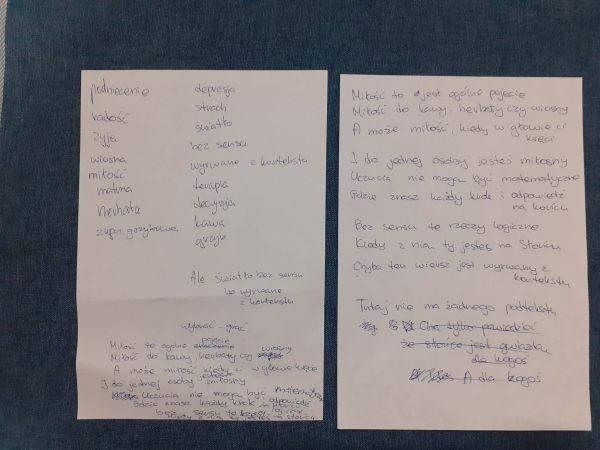 podniecenie
radość
żyja
wiosna
miłość
malina
herbata
zupa grzybowa
depresja
strach
światło
bez sensu
wyrwane z kontekstu
terapia
decyzja
kawa
grzyb
Ale światło bez sensu
bo wyrwane
z kontekstu
wybrać - grać
Miłość to ogólne pojęcie
Miłość do kawy, herbaty czy wiosny
A może miłość kiedy ci w głowie kręci
I do jednej osoby jesteś miłosny
Uczucia nie mogą być matematy
Gdzie znasz każdy krok i odpowiedź
bez sensu te rzeczy logiczne
Kiedy z nią ty jesteś na słońcu
Miłość to jest ogólne pojęcie
Miłość do kawy, herbaty czy wiosny
A może miłość, kiedy w głowie ci
kręci
I do jednej osoby jesteś miłosny
Uczucia nie mogą być matematyczne
Gdzie znasz każdy krok i odpowiedź
na końcu
Bez sensu te rzeczy logiczne
Kiedy z nią ty jesteś na słońcu
Chyba ten wiersz jest wyrwany z
kontekstu
Tutaj nie ma żadnego podtekstu
Chcę tylko powiedzieć
że słońce jest gwiazdą
dla kogoś
A dla kogoś